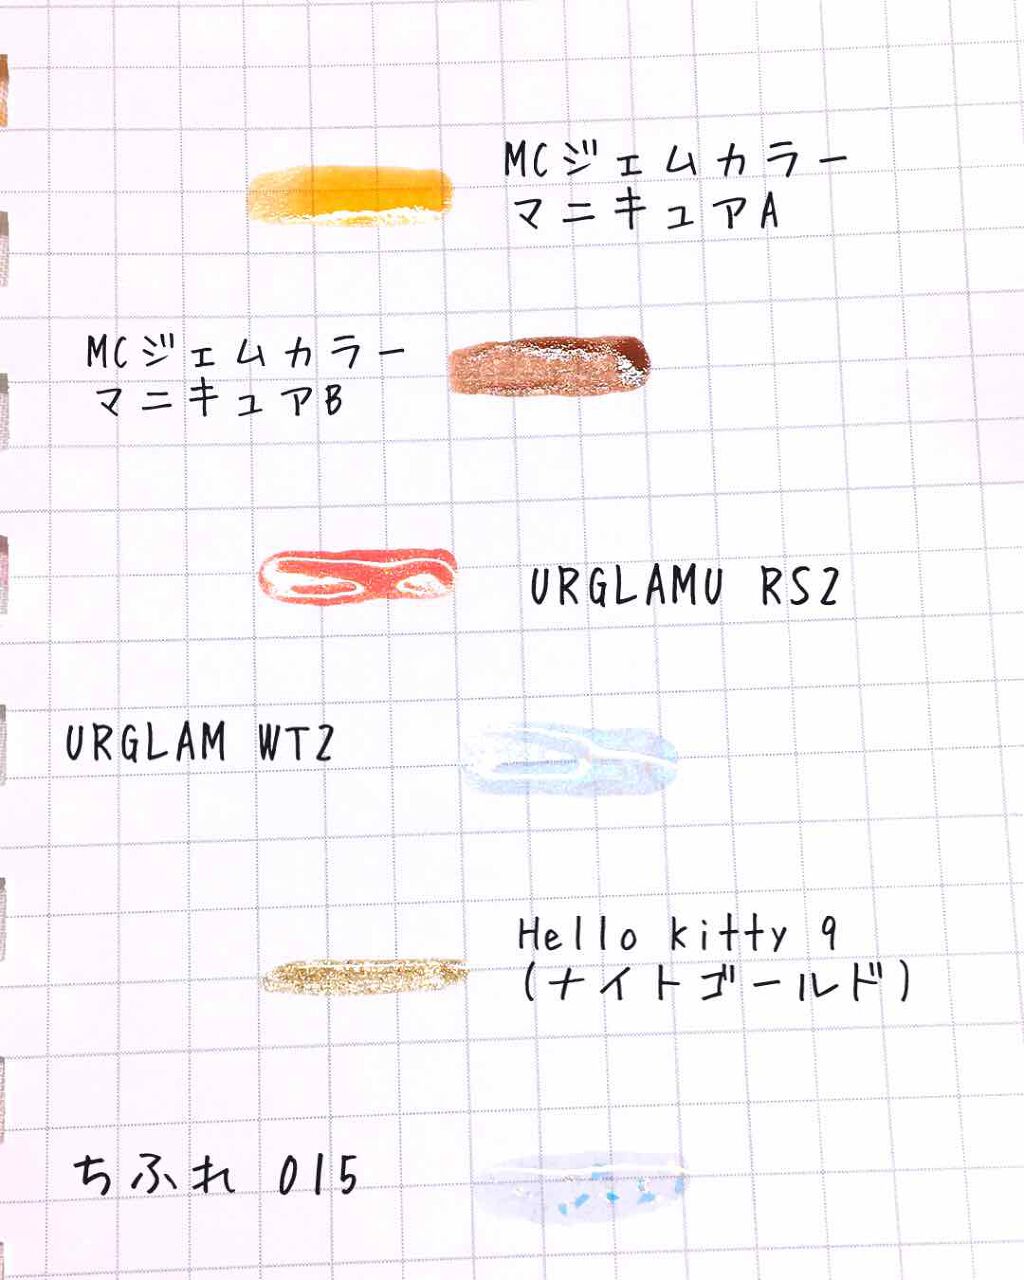 MCジェムカラー
マニキュアA
MCジェムカラー
マニキュアB
URGLAMU RS2
URGLAM WT2
Hello kitty 9
(ナイトゴールド)
ちふれ 015